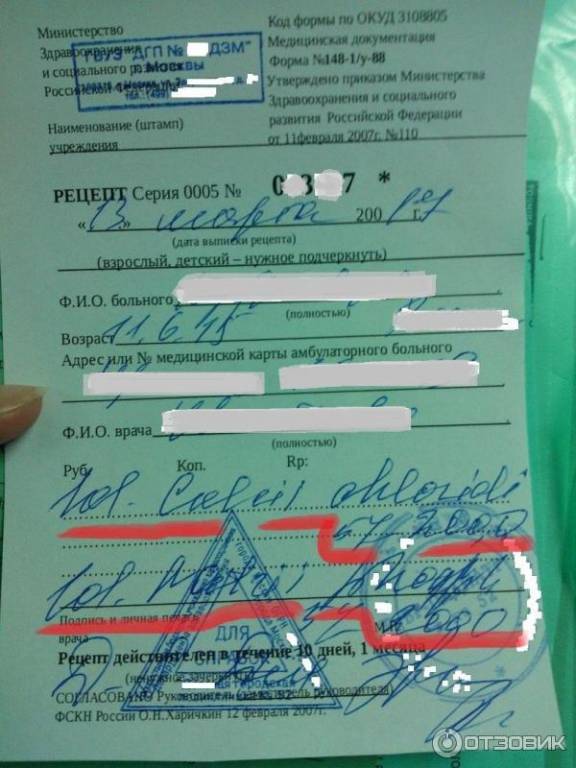 Министерство
Здравоохранения
и социального развития
Российской Федерации
ГБУЗ "ДГП № ДЗМ"
г. Москвы
Наименование (штамп)
учреждения
Код формы по ОКУД 3108805
Медицинская документация
Форма №148-1/у-88
Утверждено приказом Министерства
Здравоохранения и социального
развития Российской Федерации
от 11февраля 2007г. №110
РЕЦЕПТ Серия 0005 № 0 3 7 *
«13» марта 200 17 г.
(дата выписки рецепта)
(взрослый, детский – нужное подчеркнуть)
Ф.И.О. больного
(полностью)
Возраст 11.6.15
Адрес или № медицинской карты амбулаторного больного
Ф.И.О. врача
(полностью)
Руб. Коп. Rp:
Sol. Calcii chloridi
200,0
Sol. Natrii
Подпись и личная печать
врача
М.П.
ДЛЯ
СПРАВОК
Рецепт действителен в течение 10 дней, 1 месяца
(ненужное зачеркнуть)
СОГЛАСОВАНО Руководитель (заместитель руководителя)
ФСКН России О.Н.Харичкин 12 февраля 2007г.
ОТЗОВИК